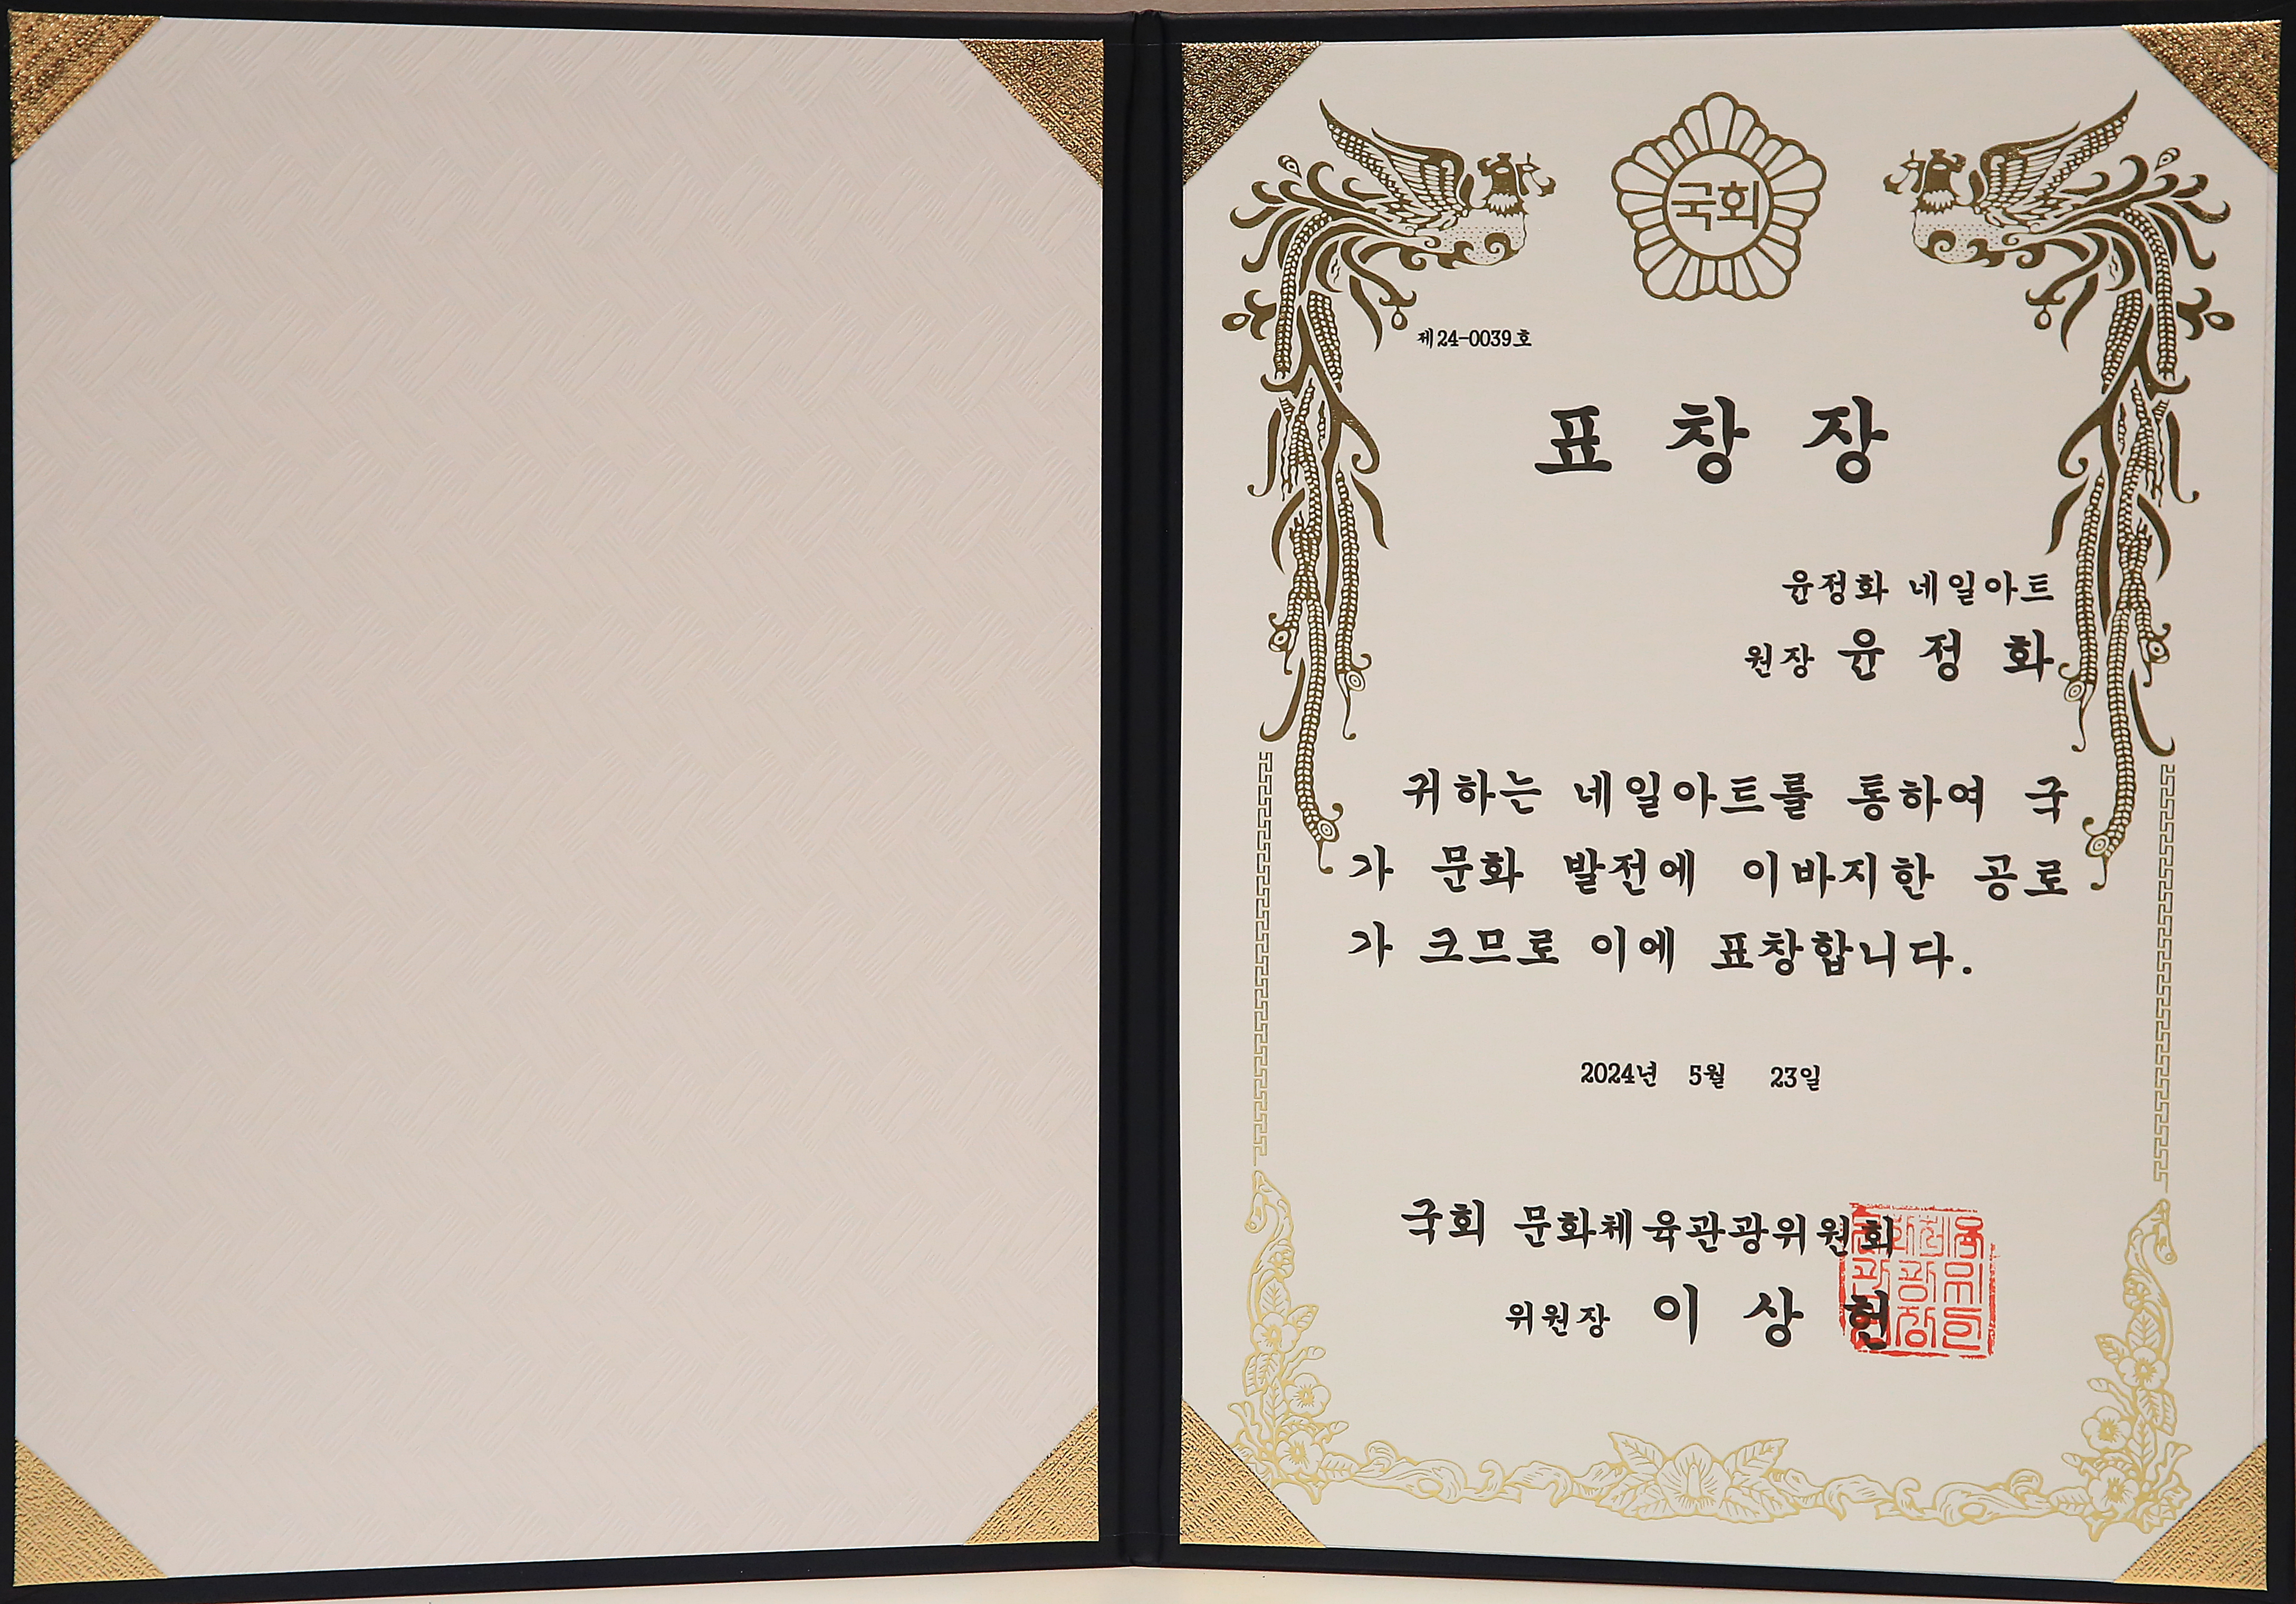 국회
제24-0039호
표 창 장
윤정화 네일아트
원장 윤 정 화
귀하는 네일아트를 통하여 국
가 문화 발전에 이바지한 공로
가 크므로 이에 표창합니다.
2024년 5월 23일
국회 문화체육관광위원회
위원장 이 상 헌